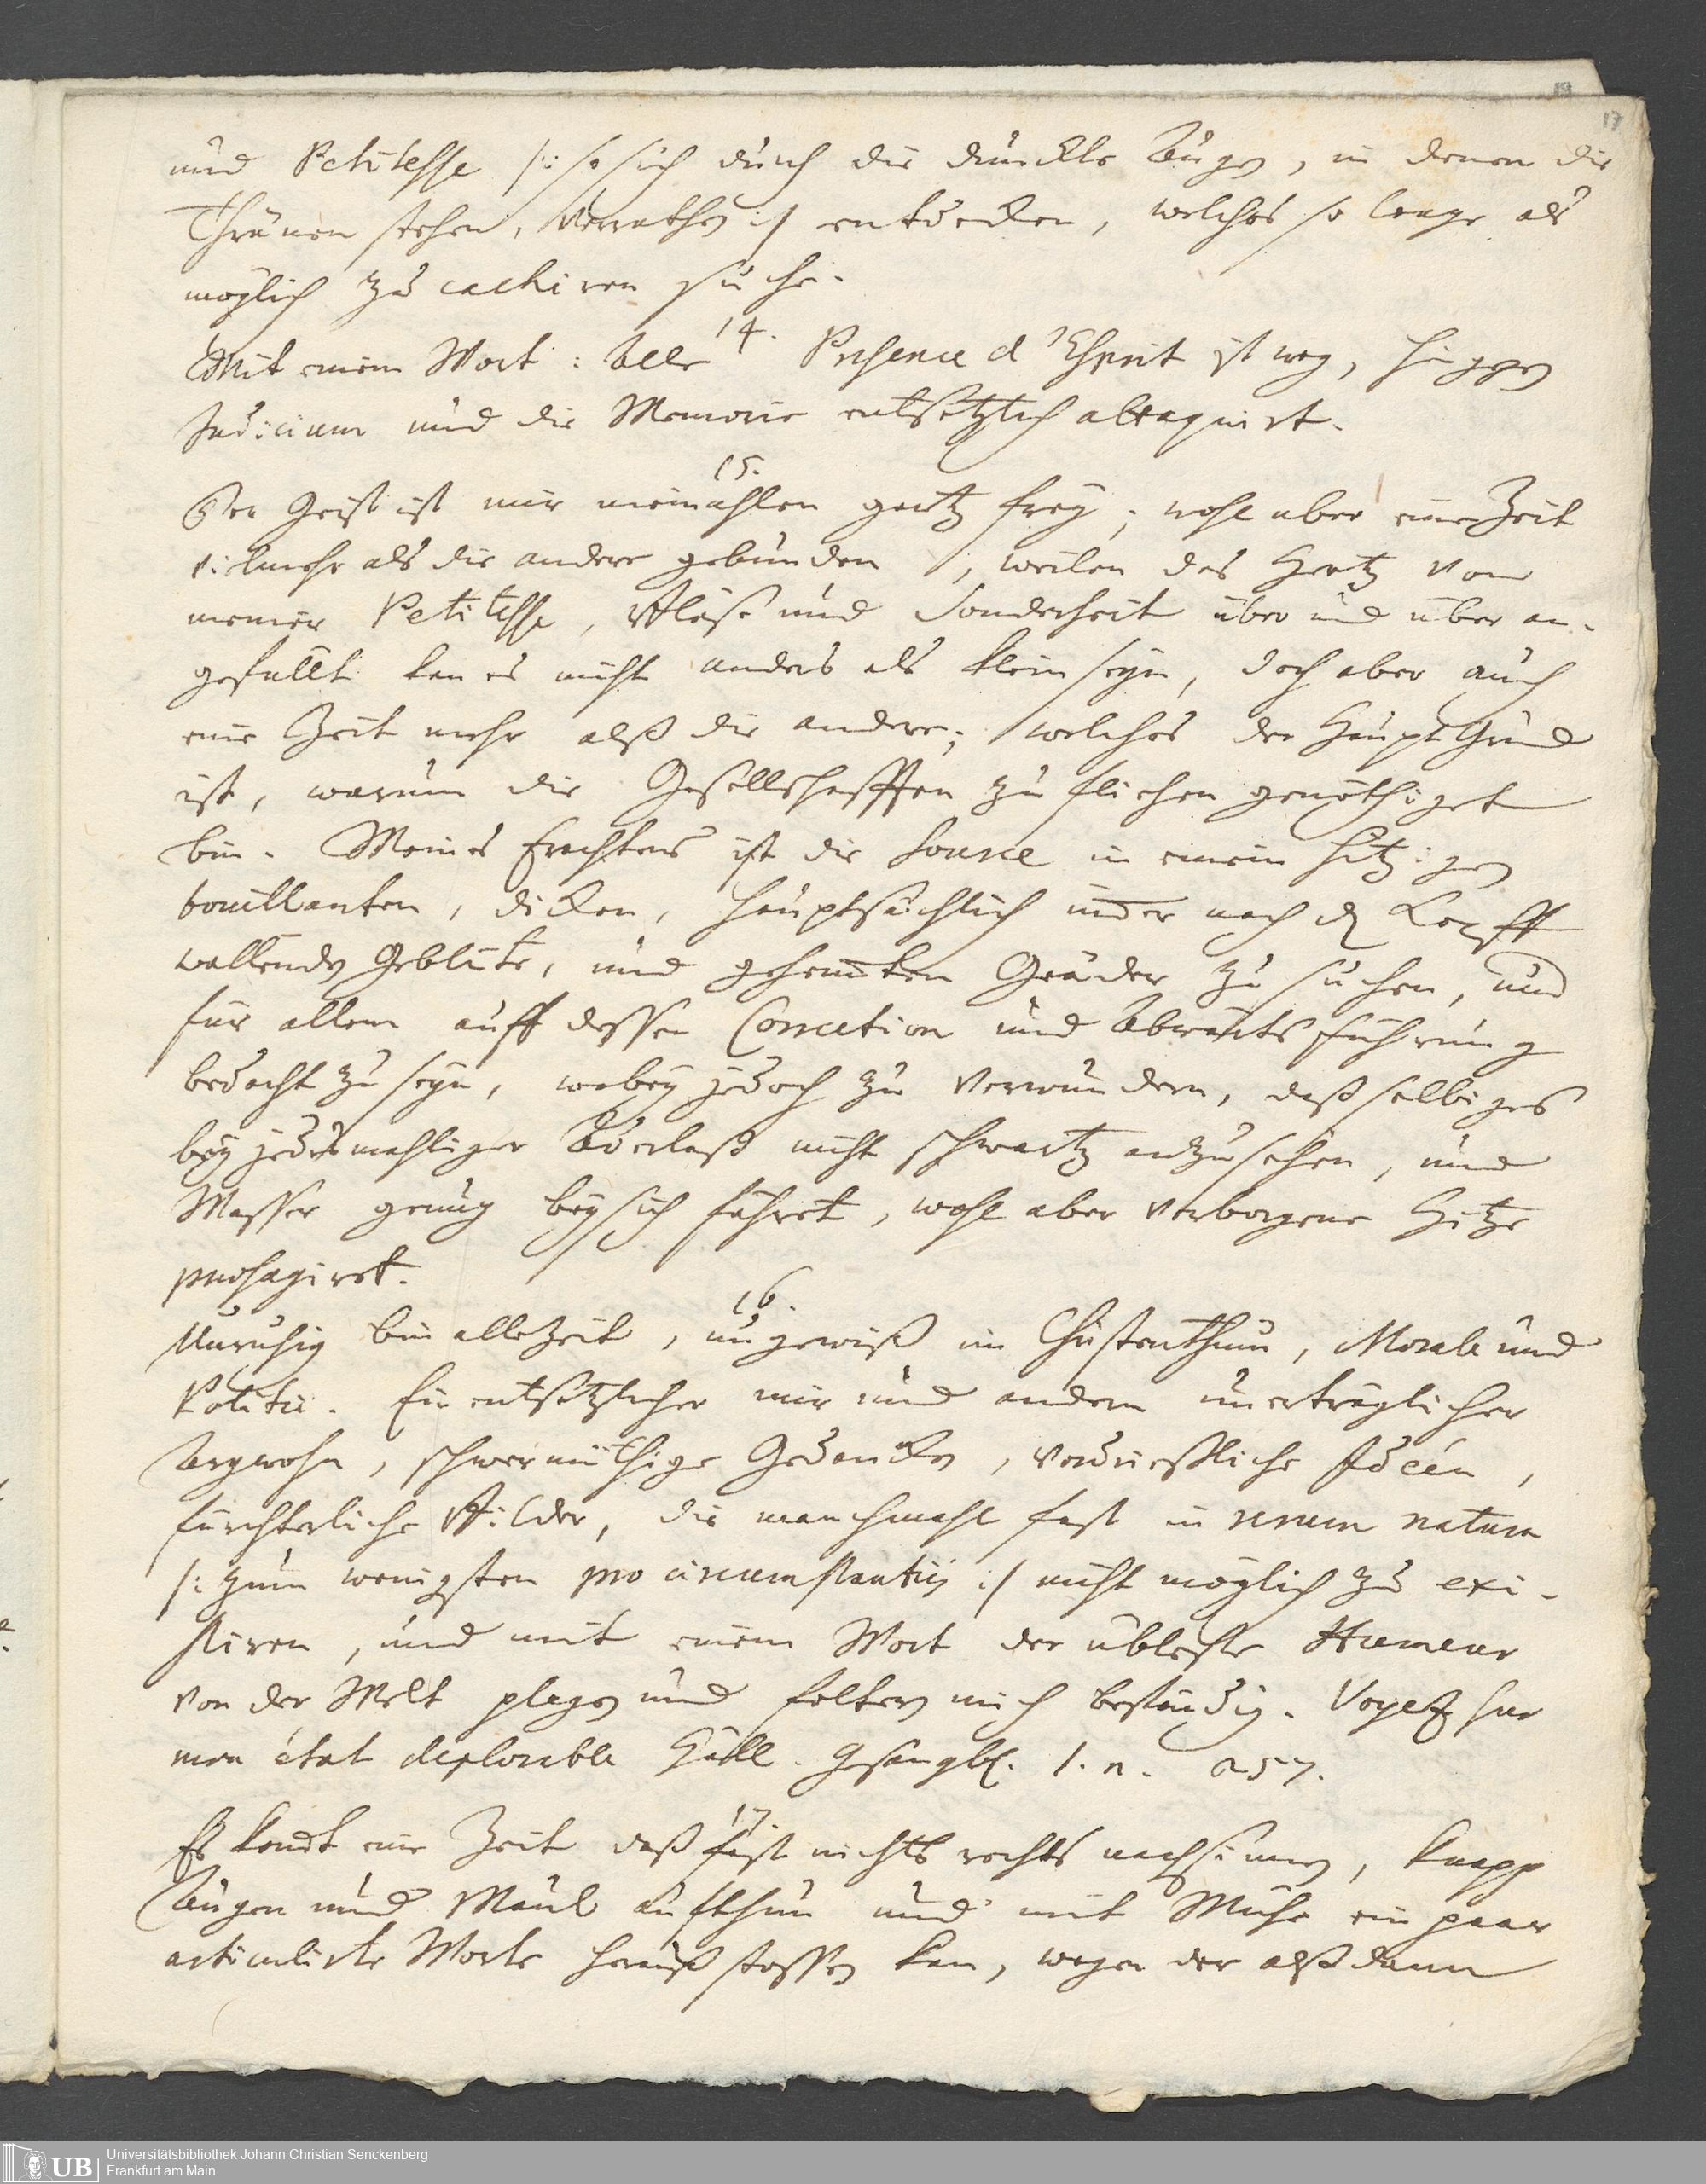 17
und Petitesse /: so sich durch die dunckle Augen, in denen die
Thränen stehen, verrathen :/ entdecken, welches so lange als
möglich zu cachiren suche.
14.
Mit einem Wort: Alle Presence d'Esprit ist weg,
Judicium und die Memorie entsetzlich attaquirt.
15.
Der Geist ist mir niemahlen gantz frey; wohl aber eine Zeit
vielmehr als die andere gebunden, weilen das Hertz von
meiner Petitesse, Blöße und Sonderheit über und über an-
gefüllt kan es nicht anders als klein seyn, doch aber auch
eine Zeit mehr alß die andere; welches der Haupt Grund
ist, warum die Gesellschafften zu fliehen genöthiget
bin. Meines Erachtens ist die Source in einem hitzigen
bouillanten, dicken, hauptsächlich nach dem Kopff
wallenden Geblüte, und gehemten Geäder zu suchen, und
für allem auff dessen Correction und Abwärtsführung
bedacht zu seyn, wobey jedoch zu verwundern, daß selbiges
bey jedesmahliger Aderlaß nicht schwartz anzusehen, und
Wasser genug bey sich führet, wohl aber verborgene Hitze
praesagiret.
16.
Unruhig bin allezeit, ungewiß im Christenthum, Morale und
Politic. Ein entsetzlicher mir und andern unerträglicher
Argwohn, schwermüthige Gedancken, verdrießliche Idéen,
fürchterliche Bilder, die manchmahl fast in rerum natura
/: zum wenigsten pro circumstantiis :/ nicht möglich zu exi-
stiren, und mit einem Wort der übleste Humeur
von der Welt plagen und foltern mich beständig. Voyez sur
mon état deplorable Hall. Gesangb. 1. n. 257.
17.
Es komt eine Zeit daß fast nichts rechts nachsinnen, knapp
Augen und Maul aufthun und mit Mühe ein paar
articulirte Worte herauß stossen kan, wegen der alßdann
UB Universitätsbibliothek Johann Christian Senckenberg
Frankfurt am Main